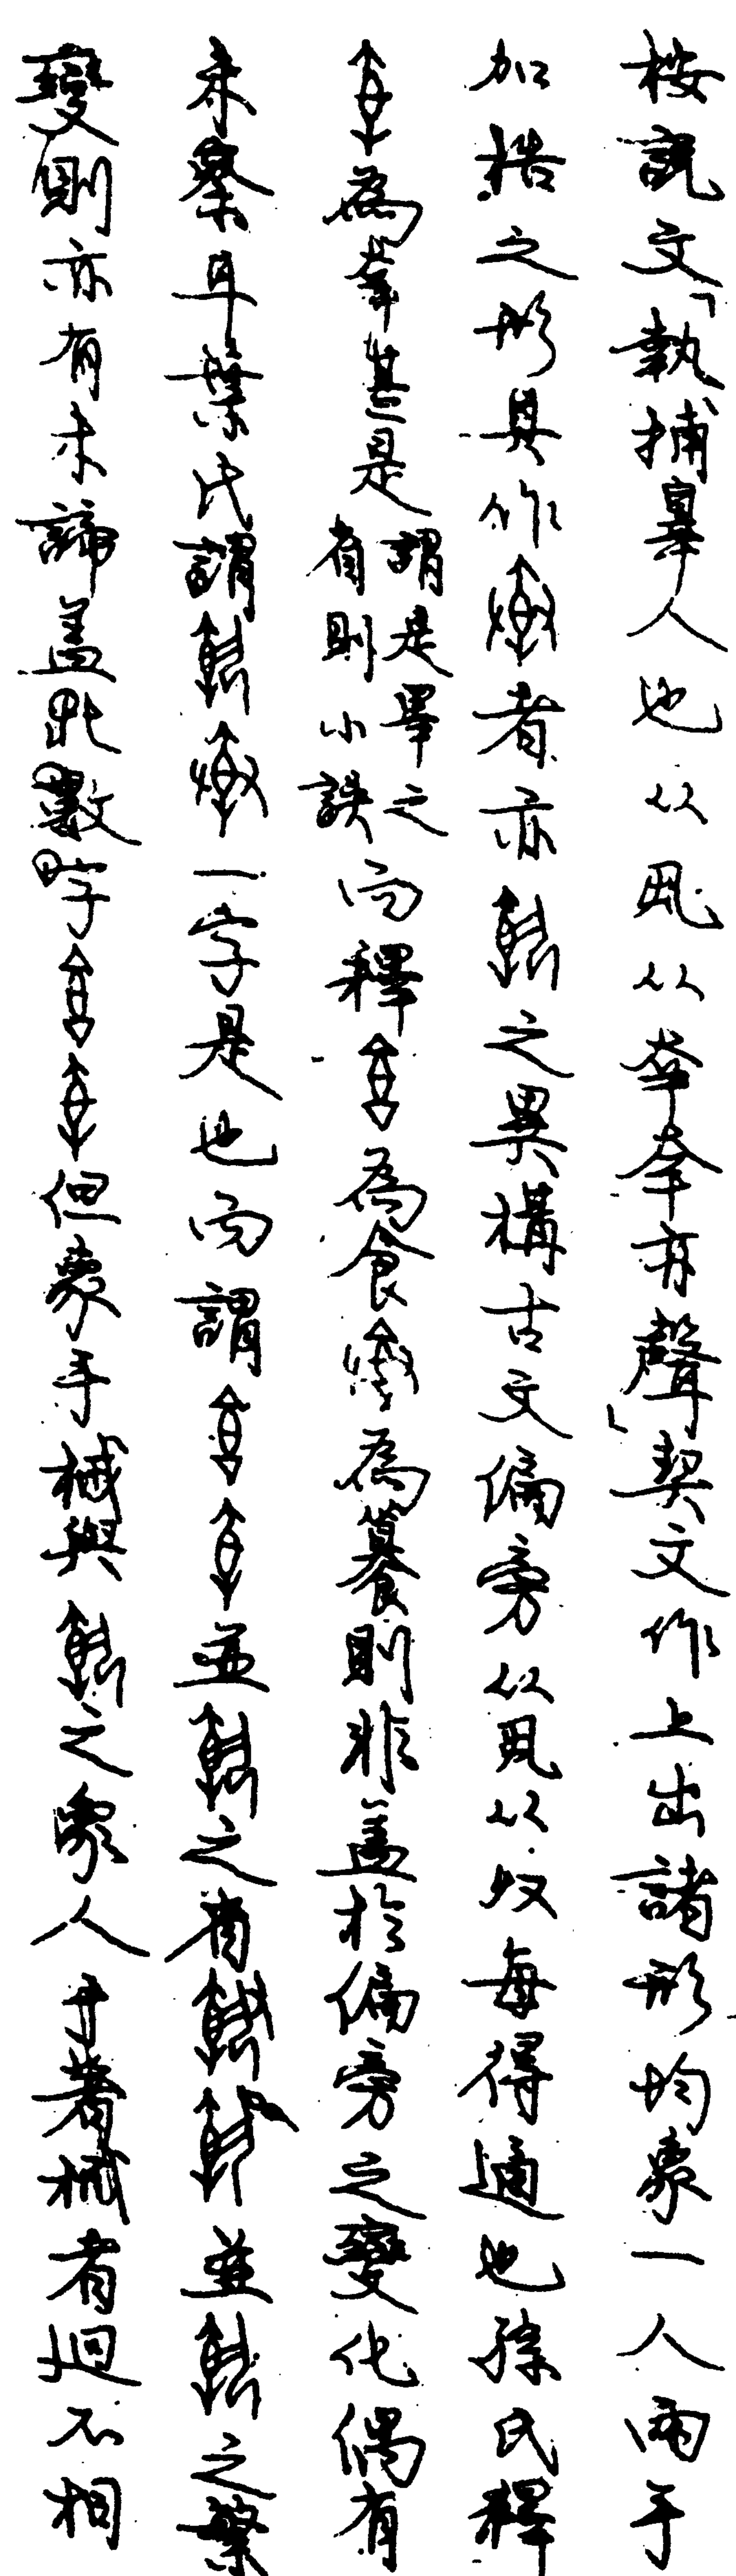 按說文「執捕辠人也从丮从㚔㚔亦聲」契文作上出諸形均象一人兩手
加梏之形其作者亦之異構古文偏旁从丮从㚣每得通也孫氏釋
為㚔甚是謂是睪之省則小誤而釋為食為籑則非蓋於偏旁之變化偶有
未察耳葉氏謂一字是也而謂並之省並之繁
變則亦有未諦蓋此數字但象手械與之象人手著械者迥不相